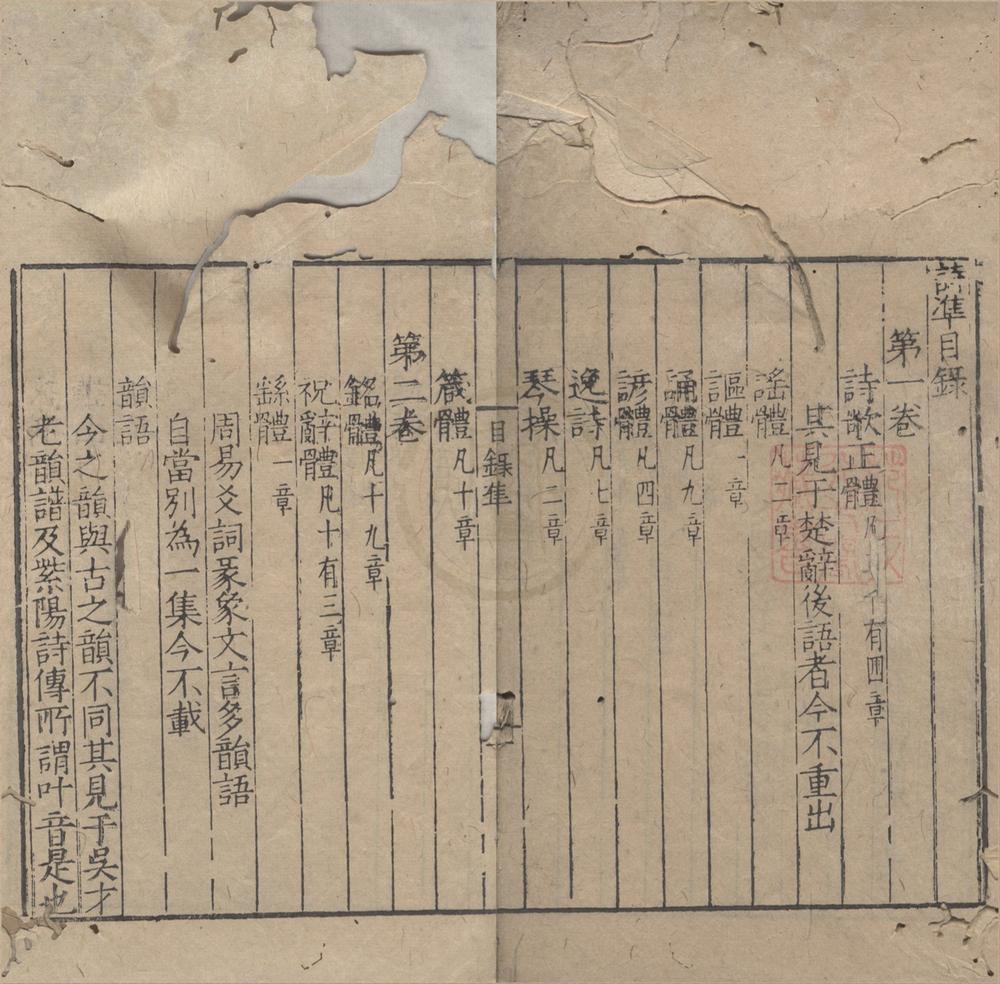 詩準目錄
第一卷
詩歌正體凡有四章
其見于楚辭後語者今不重出
謡體凡二章
謳體一章
誦體凡九章
諺體凡四章
逸詩凡七章
琴操凡二章
目錄準
箴體凡十章
第二卷
銘體凡十九章
祝辭體凡十有三章
繇體一章
周易爻詞彖象文言多韻語
自當别為一集今不載
韻語
今之韻與古之韻不同其見于吳才
老韻譜及紫陽詩傳所謂叶音是也